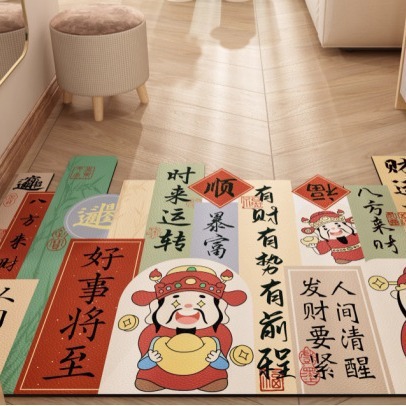 八方来财
好事将至
时来运转
顺
暴富
有财有势有前程
福
八方来时
人间清醒
发财要紧